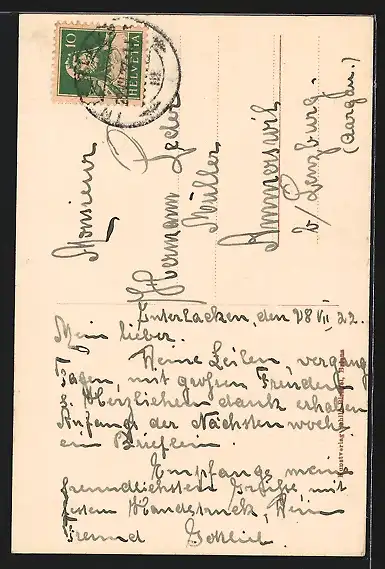 10
HELVETIA
Monsieur
Hermann Zeder
Müller
Ammerswil
b/ Lenzburg.
(Aargau.)
Interlacken, den 28 VII 22.
Mein lieber.
Deine Zeilen, vergang
Tagen, mit großen Freuden
& Herzlichem dank erhalten
Anfangs der Nächsten woche
ein Brieflein.
Empfange meine
freundlichsten Grüsse mit
festem Handedruck, Dein
Freund Gottlieb.